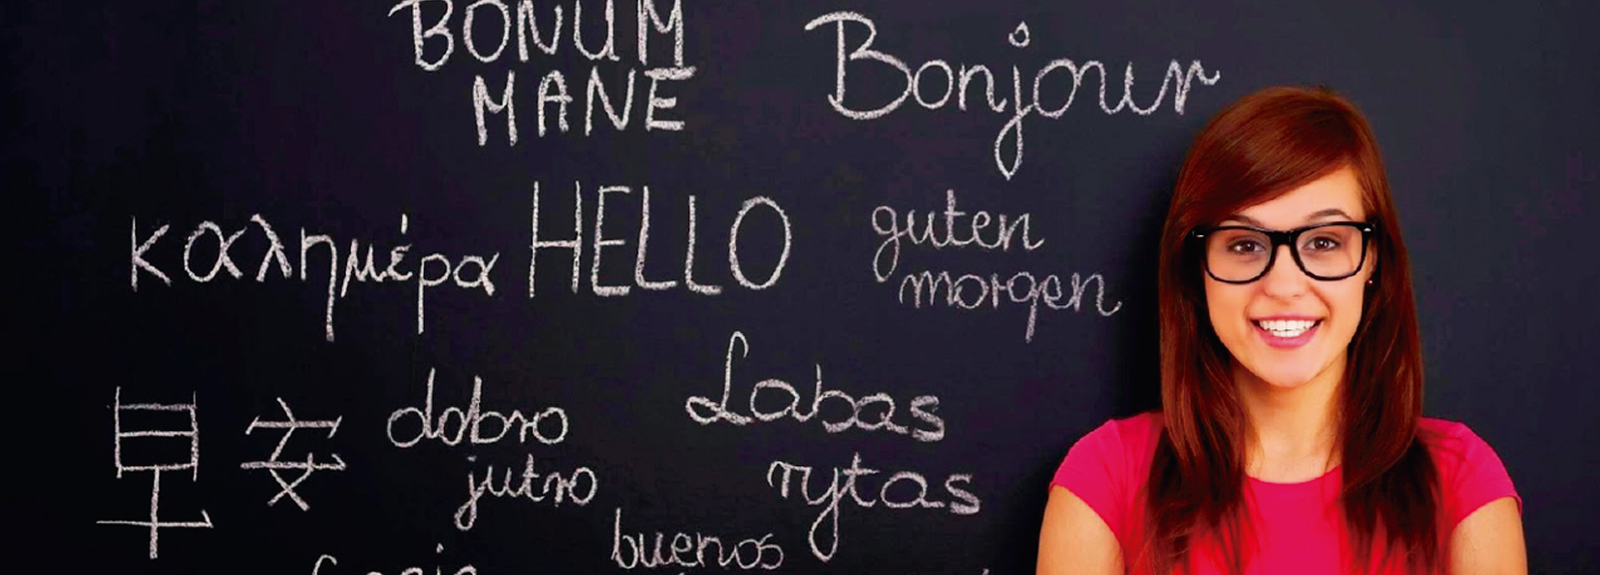 BONUM
MANE
Bonjour
καλημέρα
HELLO
guten
morgen
早安
dobro
jutro
Labas
rytas
buenos